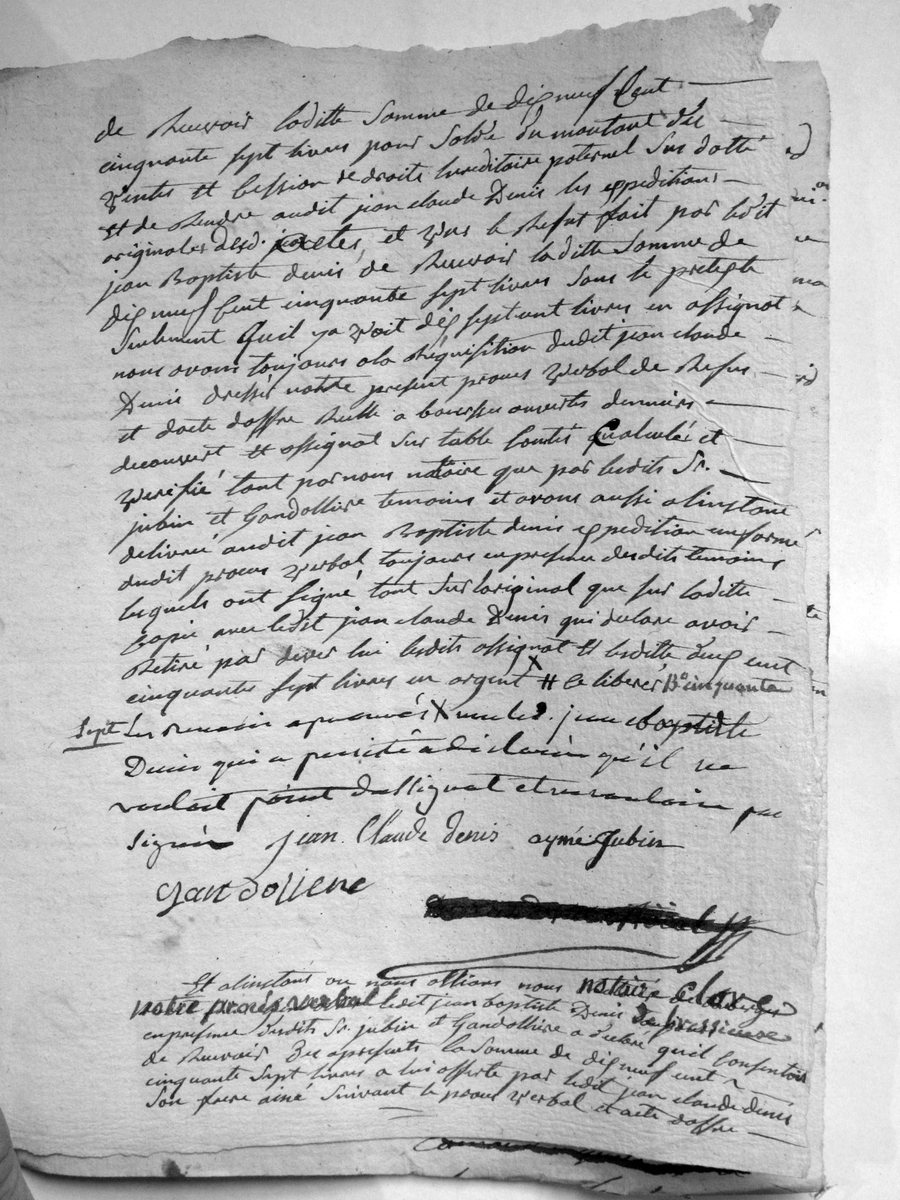 de Recevoir laditte Somme de dix neuf Cent
cinquante sept livres pour Solde du montant des
ventes et Cession de droits hereditaire paternel Sus datté
et de Rendre audit jean claude Denis les expeditions
originales desd. jactes, et vus le Refus fait par ledit
jean Baptiste denis de Recevoir laditte Somme de
dix neuf Cent cinquante sept livres Sous le pretexte
Seulement quil ya voit dix sept cent livres en assignat
nous avons toujours ala Requisition dudit jean claude
Denis dressé notre present proces verbal de Refus
et dacte doffre Reelle a bourses ouvertes denniers a
decouvert et assignat sur table Contés Calculés et
verifié tant par nous notaire que par lesdits Sr.
jubin et Gandolliere temoins et avons aussi alinstant
delivré audit jean Baptiste denis expedition en forme
dudit proces verbal toujours en presence desdits temoins
lesquels ont signé tant sur loriginal que sur laditte
Copie avec ledit jean claude Denis qui declare avoir
Retiré par dever lui lesdits assignat et lesditte cent
cinquante sept livres en argent X # Ce liberer Bo cinquante
sept
jean baptiste
Denis qui a persisté a declarer qu'il ne
voulait point dassignat et na voulu pas
signer jean Claude denis aymé Jubin
Gandolliere
Et alinstant ou nous allions nous notaire clore
notre procès verbal ledit jean baptiste Denis
en presence desdits Sr. jubin et Gandolliere a declaré quil Consentoit
de Recevoir la Somme de dix neuf cent
cinquante sept livres a lui offerte par ledit jean claude denis
Son frere ainé suivant le proces verbal et acte doffre